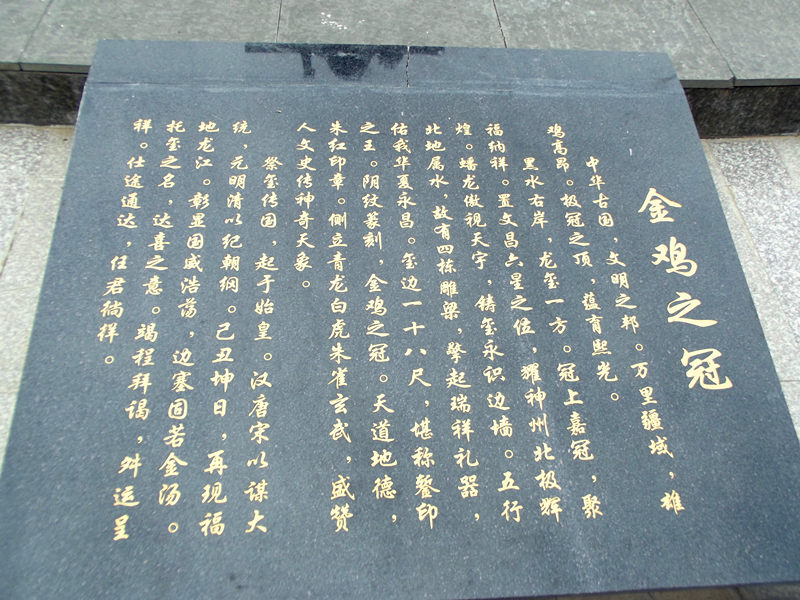 金鸡之冠
中华古国，文明之邦。万里疆域，雄
鸡高昂。极冠之顶，蕴育熙光。
黑水右岸，龙玺一方。冠上嘉冠，聚
福纳祥。置文昌六星之位，耀神州北极辉
煌。蟠龙傲视天宇，铸玺永识边墙。五行
北地属水，故有四栋雕梁，擎起瑞祥礼器，
佑我华夏永昌。玺边一十八尺，堪称鏨印
之王。阴纹篆刻，金鸡之冠。天道地德，
朱红印章。侧立青龙白虎朱雀玄武，盛赞
人文史传神奇天象。
祭玺传国，起于始皇。汉唐宋以谋大
统，元明清以纪朝纲。己丑坤日，再现福
地龙江。彰显国威浩荡，边塞固若金汤。
托玺之名，达喜之意。竭程拜谒，舛运呈
祥。仕途通达，任君徜徉。